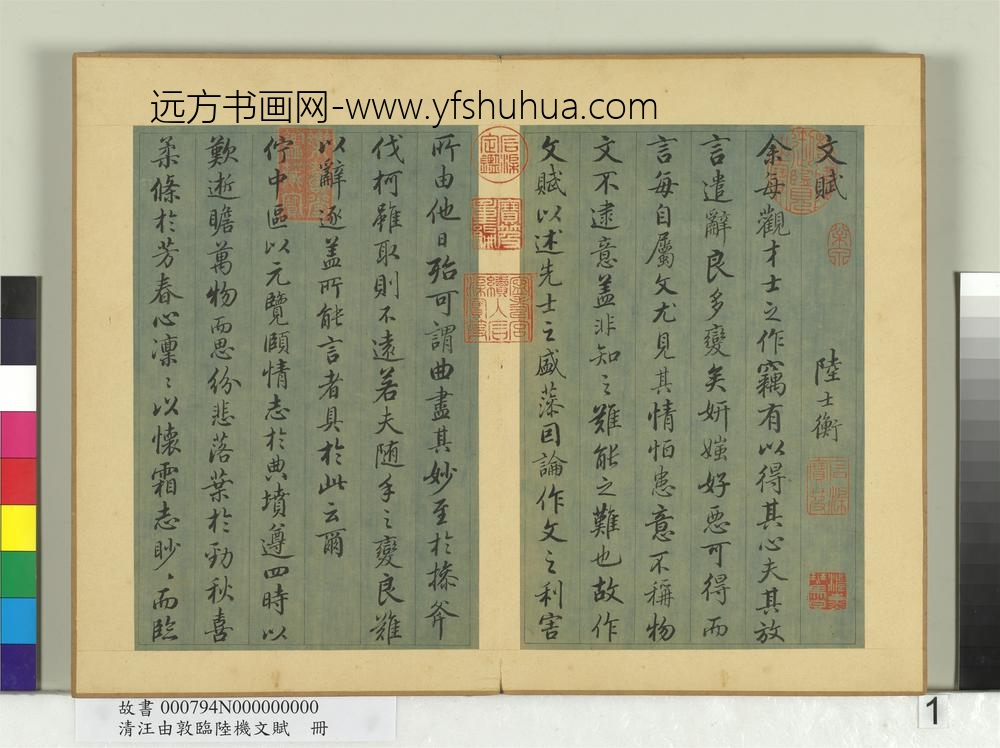 远方书画网-www.yfshuhua.com
文賦 陸士衡
余每觀才士之作竊有以得其心夫其放
言遣辭良多變矣妍媸好惡可得而
言每自屬文尤見其情怕患意不稱物
文不逮意蓋非知之難能之難也故作
文賦以述先士之盛藻因論作文之利害
所由他日殆可謂曲盡其妙至於操斧
伐柯雖取則不遠若夫隨手之變良難
以辭逐蓋所能言者具於此云爾
佇中區以元覽頤情志於典墳遵四時以
歎逝瞻萬物而思紛悲落葉於勁秋喜
柔條於芳春心凜〻以懷霜志眇〻而臨
故書 000794N000000000
清汪由敦臨陸機文賦 冊
1